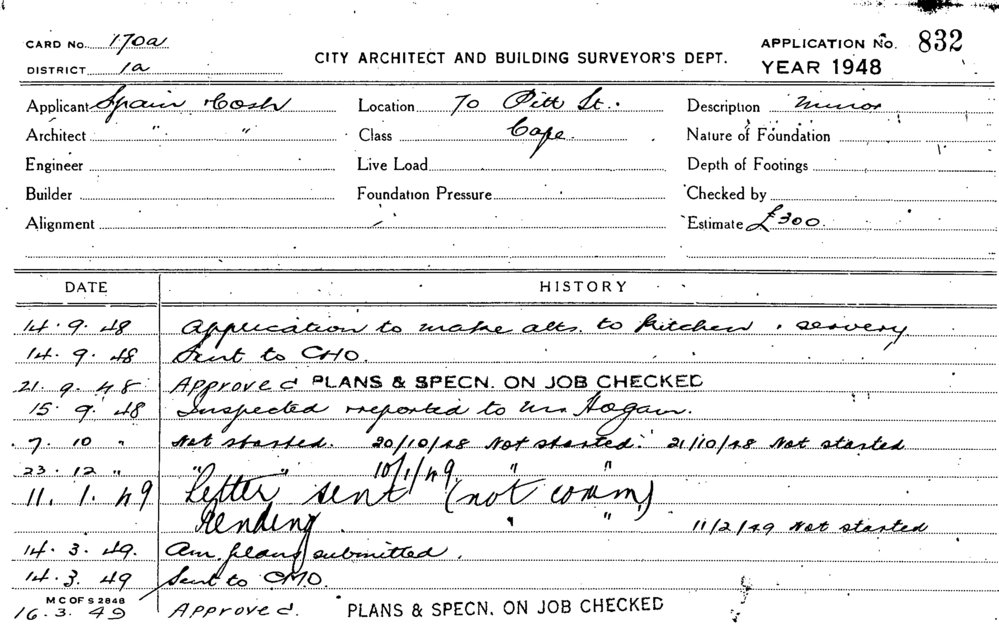 CARD No. 170a
DISTRICT 1a
CITY ARCHITECT AND BUILDING SURVEYOR'S DEPT.
APPLICATION No. 832
YEAR 1948
Applicant Spain Cosh Location 70 Pitt St. Description Minor
Architect " " Class Cafe. Nature of Foundation
Engineer Live Load Depth of Footings
Builder Foundation Pressure Checked by
Alignment Estimate £300.
DATE HISTORY
14.9.48 Application to make alts. to kitchen & servery
14.9.48 Sent to CHO.
21.9.48 Approved PLANS & SPECN. ON JOB CHECKED
15.9.48 Inspected & reported to Mr Hogan.
7.10 " Not started. 20/10/48 Not started. 21/10/48 Not started
23.12 " " " 10/1/49 " "
11.1.49 Letter sent (not comm)
Pending " " 11/2/49 Not started
14.3.49. Am. plans submitted.
14.3.49 Sent to CHO.
M C OF S 2848
16.3.49 Approved. PLANS & SPECN. ON JOB CHECKED